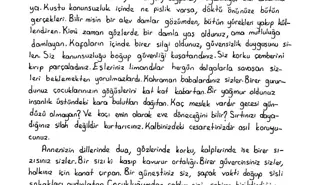 ya. Kustu kanunsuzluk içinde ne pislik varsa, döktü önünüze bütün
gerçekleri. Bilir misin bir alev damlar gözümden, bütün yürekleri yakıp kül-
lendiren. Kimi zaman gözlerde bir damla yaş oldunuz, ama mutluluğa
damlayan. Kapaların içinde birer silgi oldunuz, güvensizlik duygusunu si-
len. Siz kanunsuzluğu boğup güvenliği kuşatandınız. Siz korku çemberini
kırıp parçaladınız. Eşleriniz limandılar hırçın dalgalarla savaşan siz-
leri beklemekten yorulmazlardı. Kahraman babalardınız sizler. Birer gurur-
dunuz çocuklarınızın göğüslerini kat kat kabartan. Bir yağmur oldunuz
insanlık üstündeki kara buluttan dağıtan. Kaç meslek vardır gecesi gün-
düzü olmayan? Ve kaçı emin olarak eve döneceğini bilir? Sırtınızı daya-
dığınız silah değildir kurtarıcınız. Kalbinizdeki cesaretinizdir asıl koruyu-
cunuz.
Annenizin dillerinde dua, gözlerinde korku, kalplerinde ise birer sı-
zısınız sizler. Bir sızı ki kasıp kavurur ortalığı. Birer güvercinsiniz sizler,
halkınız için kanat çırpan. Bir güneştiniz siz, şafak vakti doğup sisli